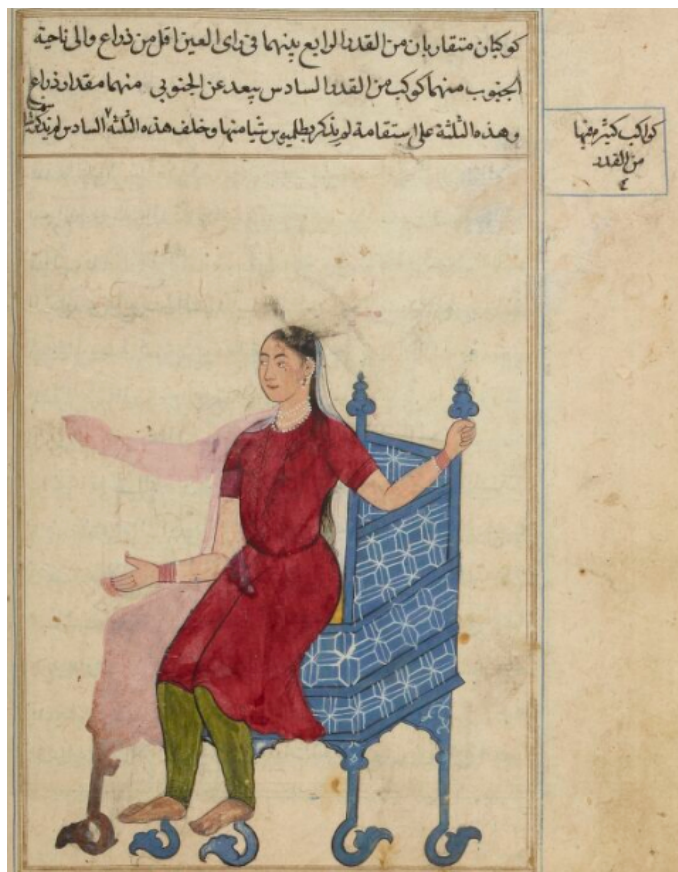 كوكبان متقاربان من القدر الرابع بينهما فى راى العين اقل من ذراع والى ناحية
الجنوب منهما كوكب من القدر السادس يبعد عن الجنوبى منهما مقدار ذراع
وهذه الثلثة على استقامة لم يذكر بطلميوس شيا منها وخلف هذه الثلثة السادس لم يذكر
كواكب كثيرة منها
من القدر
٤